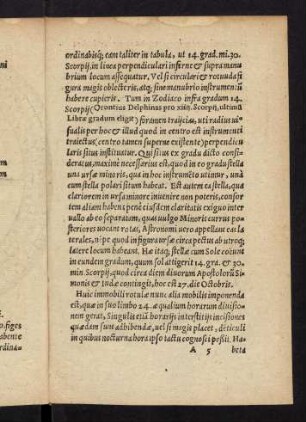 ordinabitq; eam taliter in tabula, ut 14. grad. mi. 30.
Scorpij, in linea perpendiculari inferne & supra manu
brium locum assequatur. Vel si circulari & rotunda fi
gura magis oblecteris, absq; sine manubrio instrumen
habere cupieris. Tum in Zodiaco infra gradum 14.
Scorpij (Orontius Delphinas pro xiiii. Scorpij, ultimũ
Libræ gradum eligit) foramen traijcias, uti radius ui
sualis per hoc & illud quod in centro est instrumenti
traiectus, centro tamen superne existente, perpendicu
laris situs instituatur. Qui situs ex gradu dicto consi
deratus, maxime necessarius est quoad in una stellarũ
uris ursæ minoris, qua in hoc instrumẽto utimur, unà
cum stella polari situm habeat. Est autem ea stella, qua
clariorem in ursa minori inuenire non poteris, consor
tem aliam habens penè eiusdem claritatis exiguo inter
uallo ab eo separatam, quas uulgo Minoris currus po
steriores uocant rotas, Astronomi uero appellant eas la
terales, nipe quod in figura ursæ circa pectus ab utroq;
latere locum habeant. Hæ itaq; stellæ cum Sole coëunt
in eundem gradum, quum Sol attigerit 14. gra. & 30.
min. Scorpij, quod circa diem diuorum Apostolorũ Si
monis & Iudæ contingit, hoc est 27. die Octobris.
Huic immobili rotulæ nunc alia mobilis imponenda
est, quæ in suo limbo 24. æqualium horarum diuisio
nem gerat, Singulis etiã horarijs interstitijs incisiones
quædam sunt adhibendæ, uel si magis placet, dẽticuli
in quibus nocturna hora ipso tactu cognosci possit. Ha
A 5 beta
ni
m
m
o. figes
sbente
rdina=